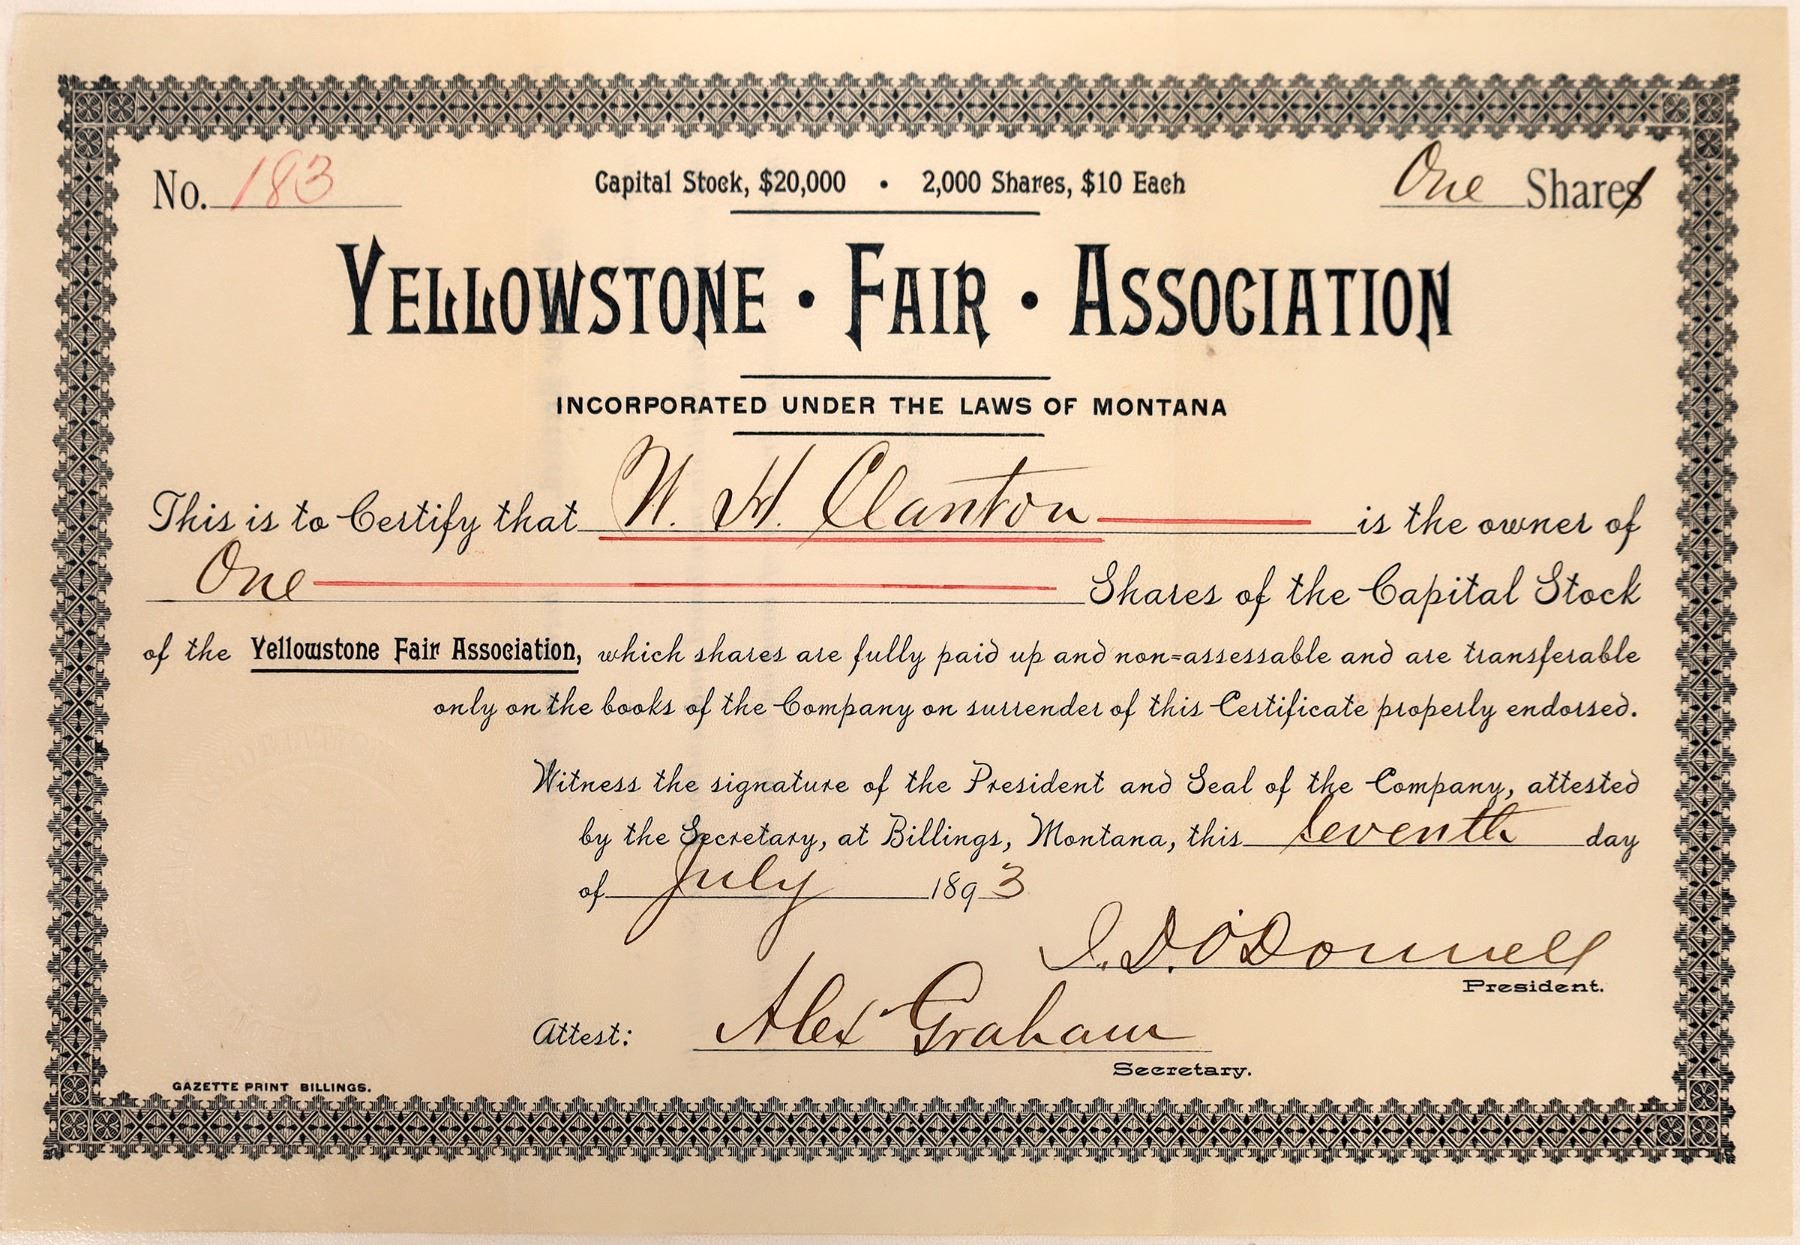 No. 183
Capital Stock, $20,000 • 2,000 Shares, $10 Each
One Shares
YELLOWSTONE • FAIR • ASSOCIATION
INCORPORATED UNDER THE LAWS OF MONTANA
This is to Certify that W. H. Clanton is the owner of
One Shares of the Capital Stock
of the Yellowstone Fair Association, which shares are fully paid up and non=assessable and are transferable
only on the books of the Company on surrender of this Certificate properly endorsed.
Witness the signature of the President and Seal of the Company, attested
by the Secretary, at Billings, Montana, this seventh day
of July 1893
I. D. O'Donnell
President.
Attest: Alex Graham
Secretary.
GAZETTE PRINT BILLINGS.